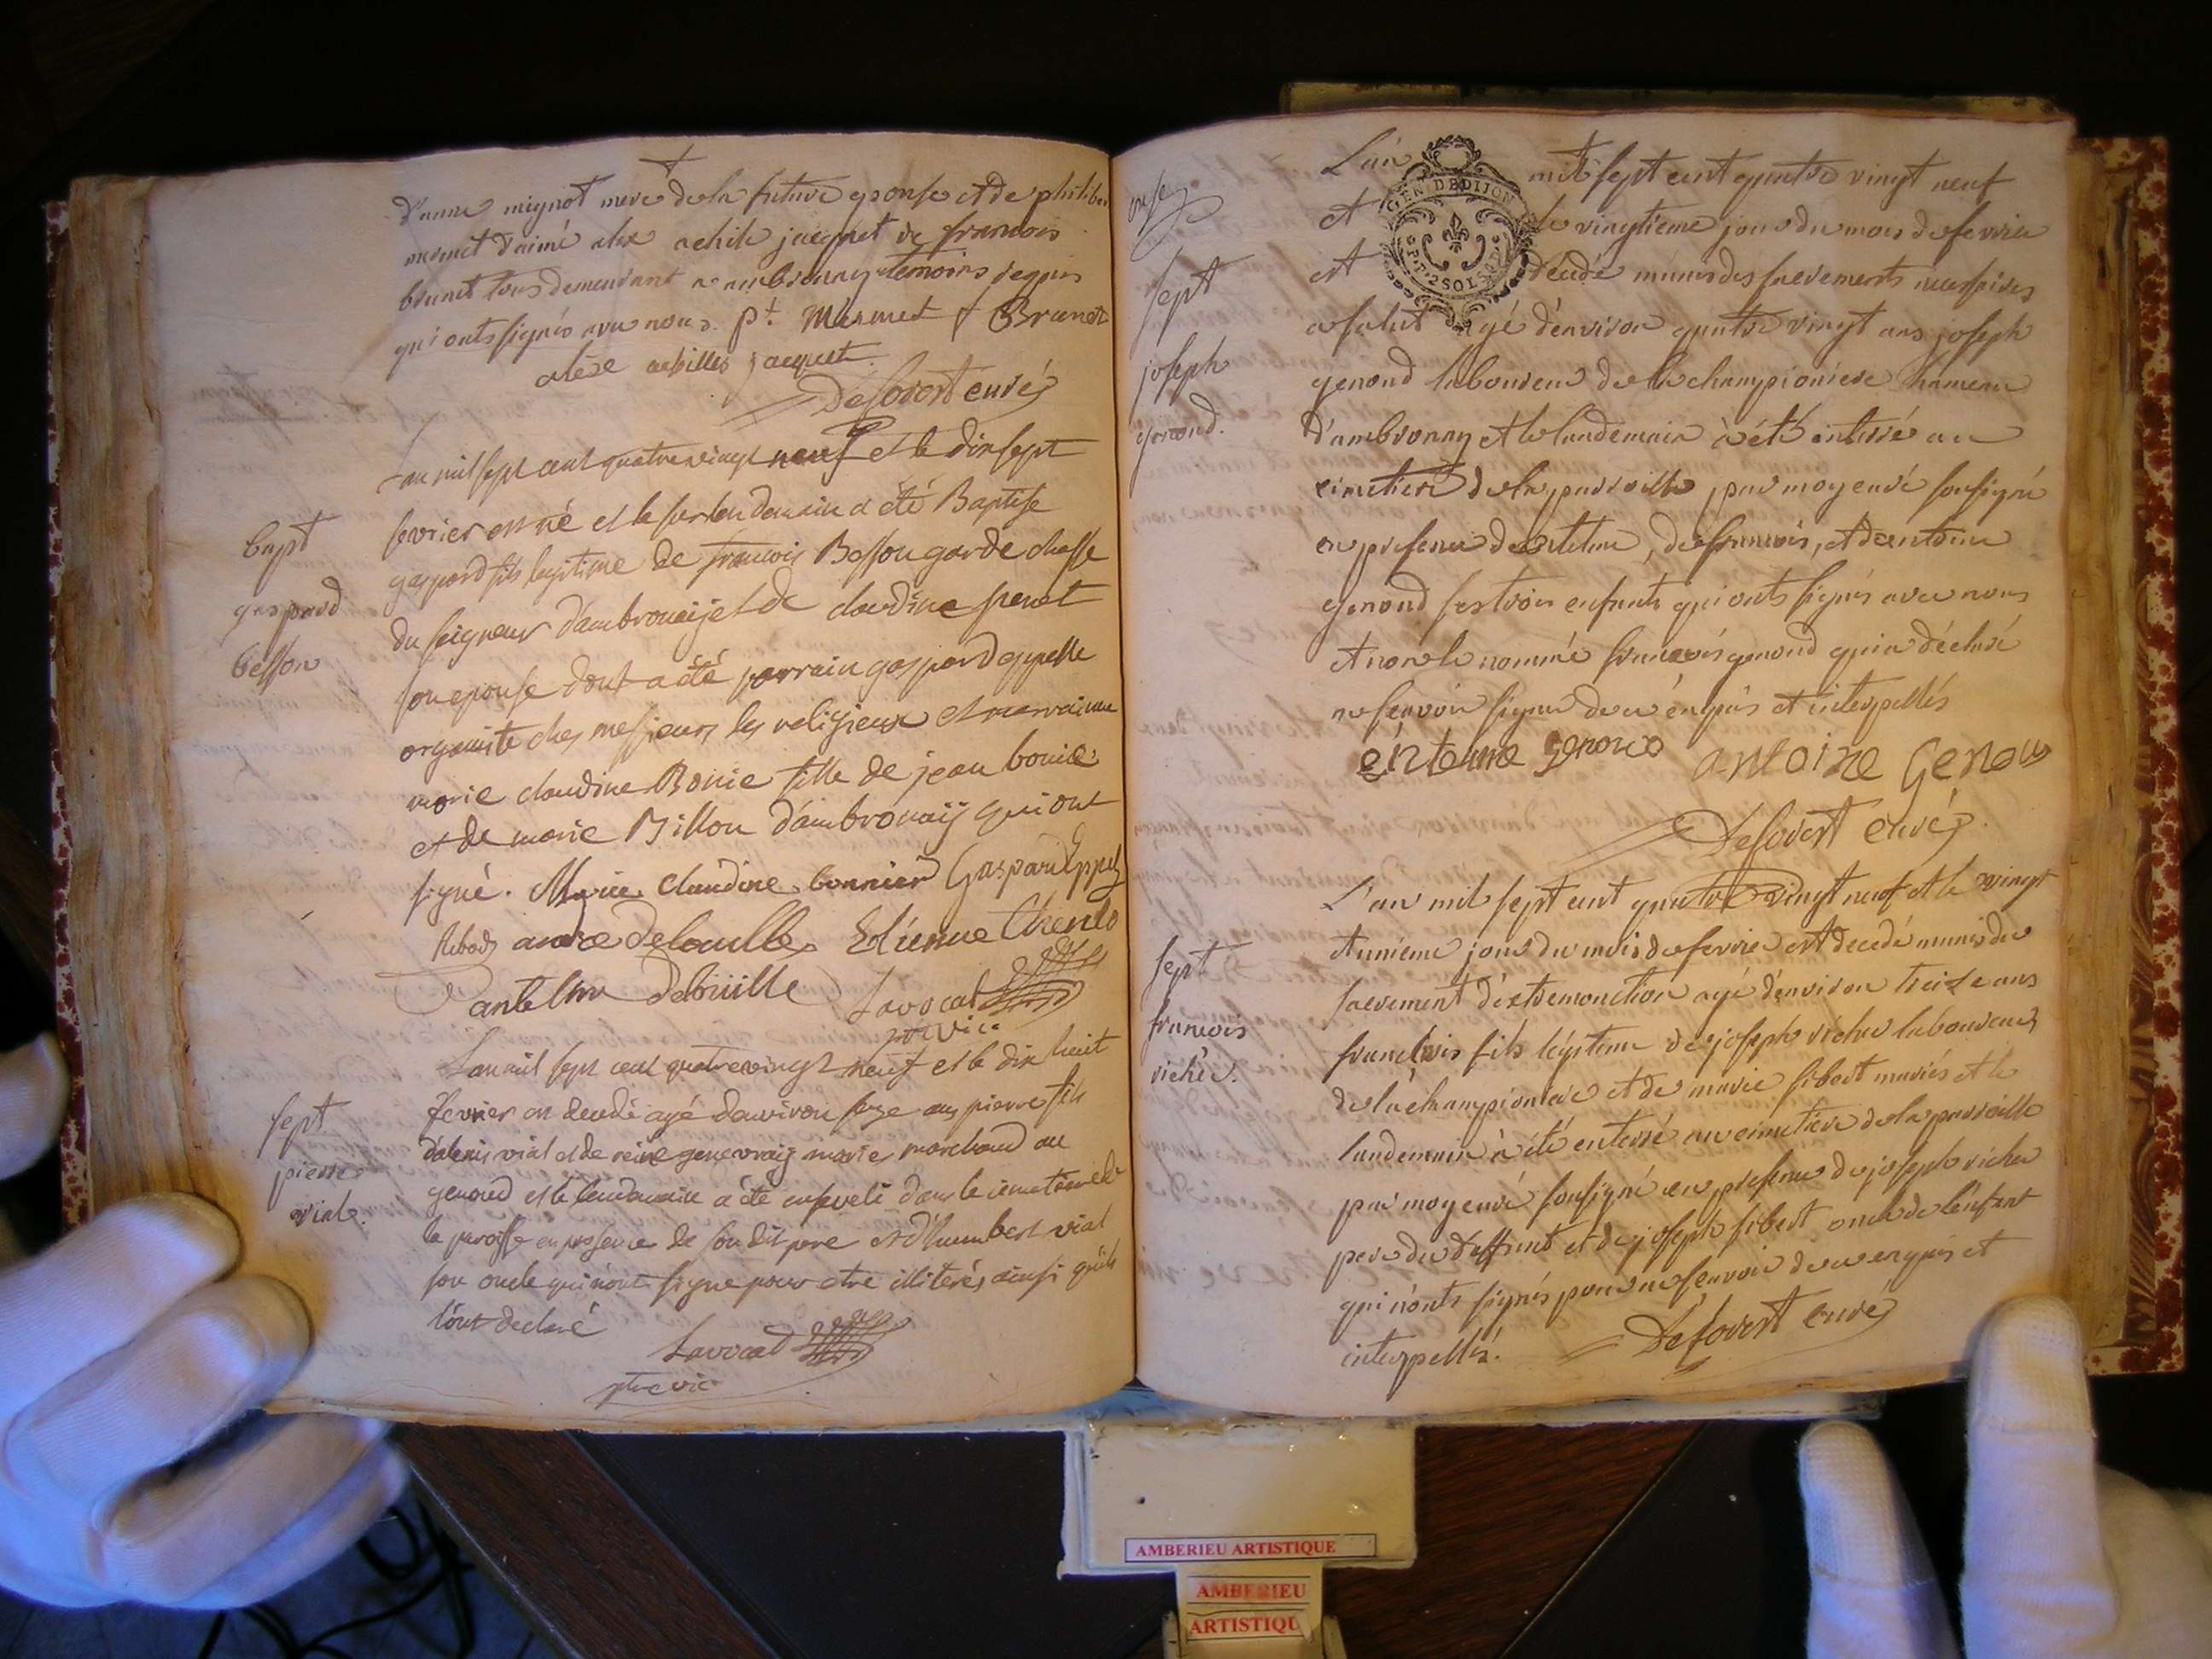 d'anne mignot mere de la future eponse et de philiber
mermet d'aimé alex achile jacquet de francois
brunet tous demeurant a ambronay temoins requis
qui onts signés avec nous. pt. Mermet f Brunet
alexe achilles jacquet.
Desovert curé
Bapt
gaspard
besson
Lan mil sept cent quatrevingt neuf et le dix sept
fevrier est né et le surlendemain a été Baptise
gaspard fils legitime de francois Besson garde chasse
du seigneur d'ambronaij et de claudine peret
son epouse dont a été parrain gaspard eppelle
organiste ches messieurs les religieux et marrainne
marie claudine Bonie fille de jean bonie
et de marie Billon d'ambronaij qui ont
signé. Marie Claudine bonnier Gaspard Eppel
andré Delouille Etienne
antelme Debuille Lavocat
ptre vic
sept
pierre
vial.
Lan mil sept cent quatrevingt neuf et le dix huit
fevrier est decedé agé d'environ seze ans pierre fils
d'alexis vial et de reine genevraij mariés marchand au
genoud et le lendemain a été enseveli dans le cimetiere de
la paroisse en presence de son dit pere et d'humbert vial
son oncle qui n'ont signe pour etre illiterés ainsi qu'ils
l'ont declaré
Lavocat
ptre vic
onse
sept
joseph
genoud.
L'an mil sept cent quatre vingt neuf
et le vingtieme jour du mois de fevrier
est décédé munis des sacrements necessaires
a salut agé d'environ quatre vingt ans joseph
genoud laboureur de la championiere hameau
d'ambronay et le landemain à été enterré au
cimetiere de la parroille par moy curé sousigné
en presence d'entelme, de francois, et d'antoine
genoud ses trois enfants qui onts signés avec nous
et non le nommé francois genoud qui a déclaré
ne scavoir signer de ce enquis et interpellés
entelme genoud antoine Genou
Desovert curé
sept
francois
richér.
L'an mil sept cent quatre vingt neuf et le vingt
et unieme jour du mois de fevrier est decedé munis du
sacrement d'extremonction agé d'environ treize ans
francois fils légitime de joseph richer laboureur
de la championiere et de marie sibert mariés et le
landemain à été enterré au cimetiere de la parroille
par moy curé sousigné en presence de joseph richer
pere du deffunt et de joseph sibert oncle de l'enfant
qui n'onts signés pour ne scavoir de ce enquis et
interpellés.
Desovert curé
GEN. DE DIJON
2 SOLS
AMBERIEU ARTISTIQUE
AMBERIEU
ARTISTIQU